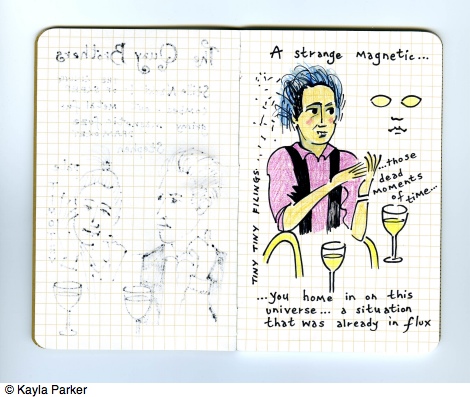 The Quay Brothers
A strange magnetic...
...those
dead
moments
of time...
TINY TINY FILINGS...
...you home in on this
universe... a situation
that was already in flux
© Kayla Parker